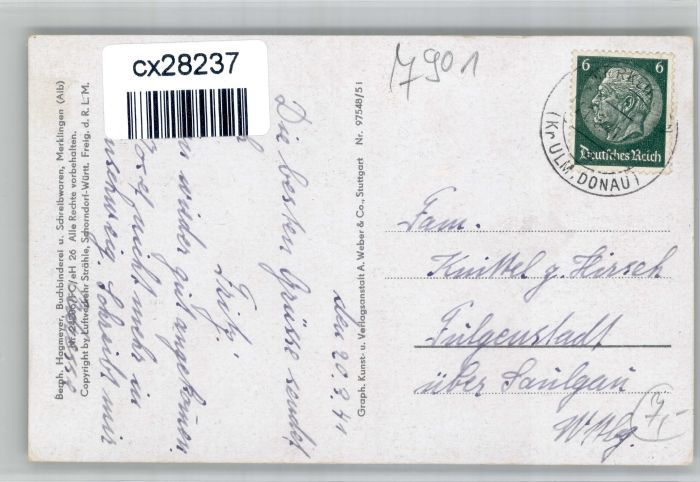 cx28237
7901
6 6
Deutsches Reich
(Kr. ULM, DONAU)
Fam.
Knittel z. Hirsch
Fulgenstadt
über Saulgau
Wttbg.
7,-
Graph. Kunst- u. Verlagsanstalt A. Weber & Co., Stuttgart Nr. 97548/51
den 20.9.41
Die besten Grüsse sendet
Fritz.
wieder gut angekommen
Josef nicht mehr in
Schreibt mir
Bernh. Hagmeyer, Buchbinderei u. Schreibwaren, Merklingen (Alb)
/eH 26 Alle Rechte vorbehalten.
Copyright by Luftverkehr Strähle, Schorndorf-Württ. Freig. d. R.L.M.